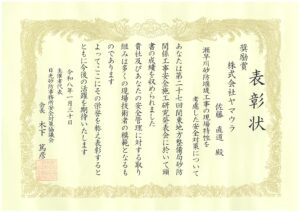 表彰状
奨励賞
株式会社ヤマウラ
佐藤 直道 殿
瀬早川砂防堰堤工事の現場特性を
考慮した安全対策について
あなたは第二十七回関東地方整備局砂防
関係工事安全施工研究発表会に於いて頭
書の成績を収められました
貴社及びあなたの安全管理に対する取り
組みは多くの現場技術者の模範となるも
のであります
よって、ここにその栄誉を称え表彰すると
ともに今後の活躍を期待いたします
令和八年一月三十日
主催者代表
日光砂防事務所安全対策協議会
会長 木下 篤彦